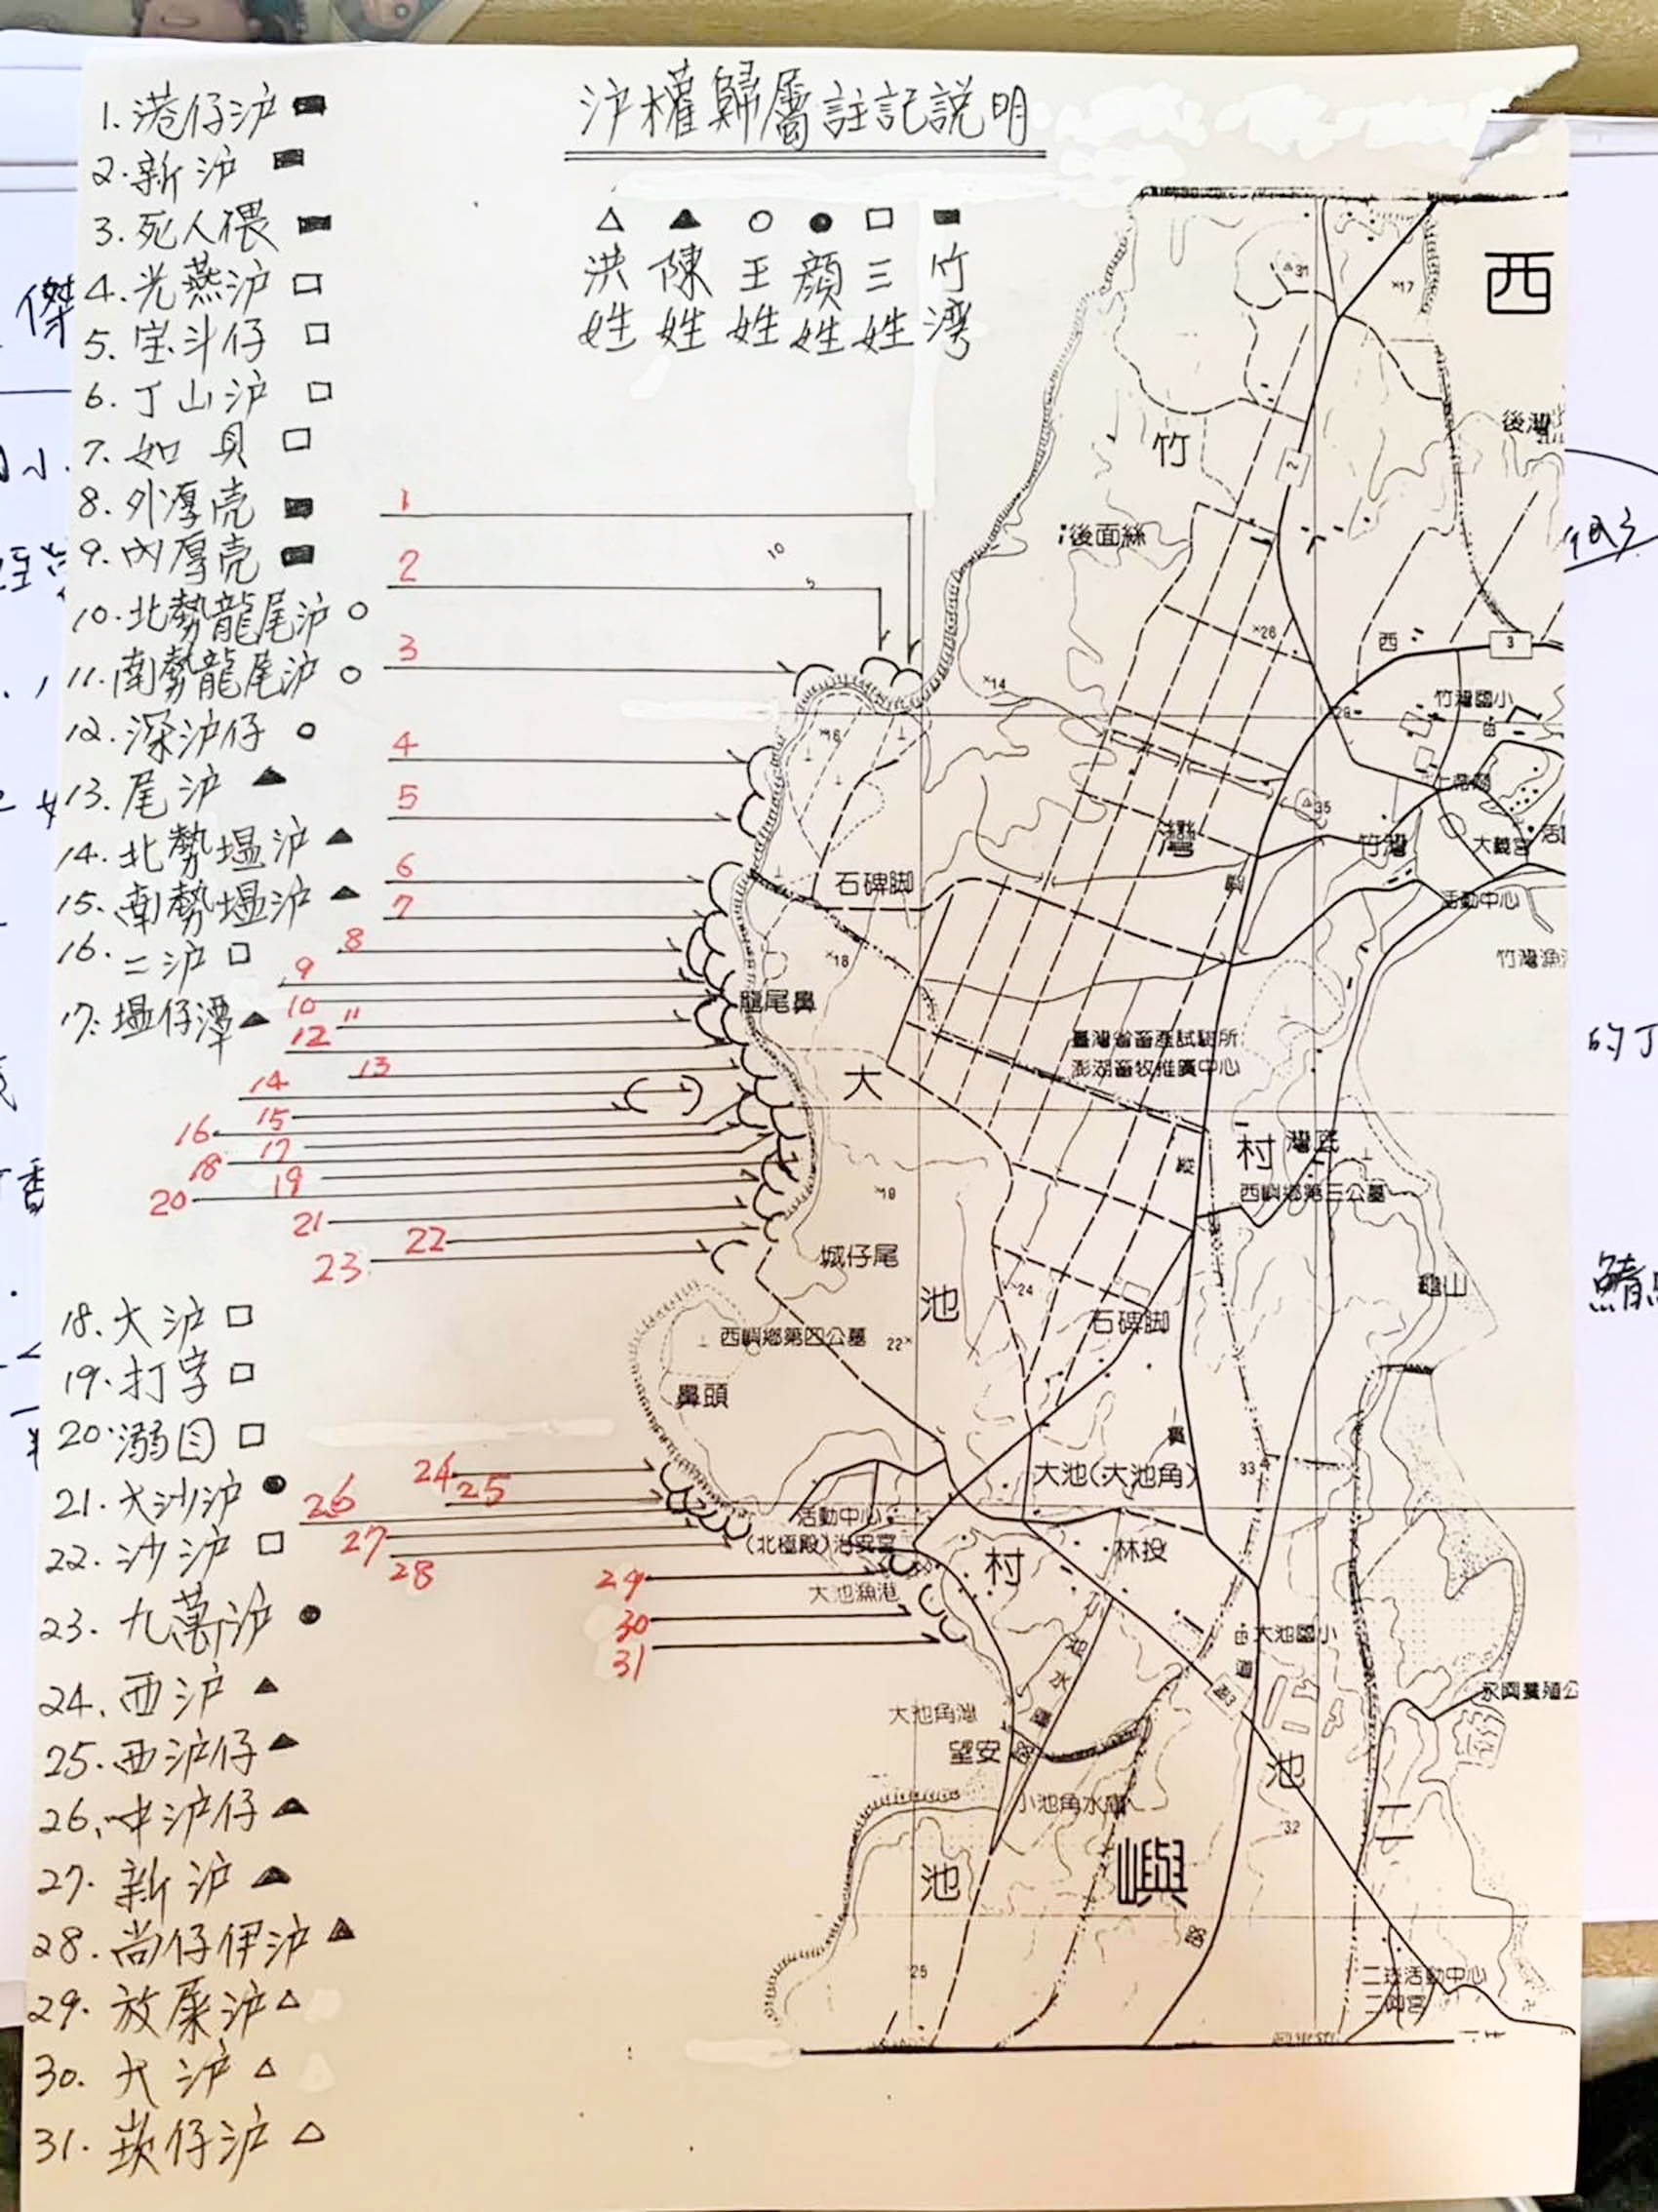 沪權歸屬註記説明
△ ▲ ○ ● □ ■
洪姓 陳姓 王姓 顔姓 三姓 竹湾
1. 港仔沪 ■
2. 新沪 ■
3. 死人偎 ■
4. 光燕沪 □
5. 宝斗仔 □
6. 丁山沪 □
7. 如貝 □
8. 外厚壳 ■
9. 内厚壳 ■
10. 北勢龍尾沪 ○
11. 南勢龍尾沪 ○
12. 深沪仔 ○
13. 尾沪 ▲
14. 北勢塭沪 ▲
15. 南勢塭沪 ▲
16. 二沪 □
17. 塭仔潭 ▲
18. 大沪 □
19. 打字 □
20. 溺囝 □
21. 大沙沪 ●
22. 沙沪 □
23. 九萬沪 ●
24. 西沪 ▲
25. 西沪仔 ▲
26. 中沪仔 ▲
27. 新沪 ▲
28. 尚仔伊沪 ▲
29. 放屎沪 △
30. 大沪 △
31. 崁仔沪 △
1
2
3
4
5
6
7
8
9
10
11
12
13
14
15
16
17
18
19
20
21
22
23
24
25
26
27
28
29
30
31
10
5
西
31
17
竹
後面絲
2
26
西
3
14
竹灣國小
16
35
灣
竹灣
大義宮
石碑脚
活動中心
18
龍尾鼻
臺灣省畜產試驗所
澎湖畜牧推廣中心
大
村
灣底
縱
西嶼鄉第三公墓
19
城仔尾
池
24
石碑脚
龜山
西嶼鄉第四公墓
22
鼻頭
貫
大池(大池角)
33
活動中心
(北極殿)治安宮
村
林投
大池漁港
大池國小
大池角灣
望安
池
小池角水庫
二
32
池
嶼
25
二崁活動中心
二興宮
傑
的丁